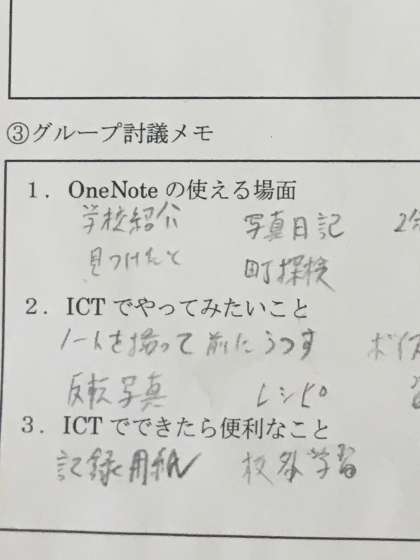 ③グループ討議メモ
1．OneNoteの使える場面
学校紹介　写真日記
見つけたよ　町探検
2．ICTでやってみたいこと
ノートを撮って前にうつす　ボイ
反転写真　レシピ
3．ICTでできたら便利なこと
記録用紙　校外学習